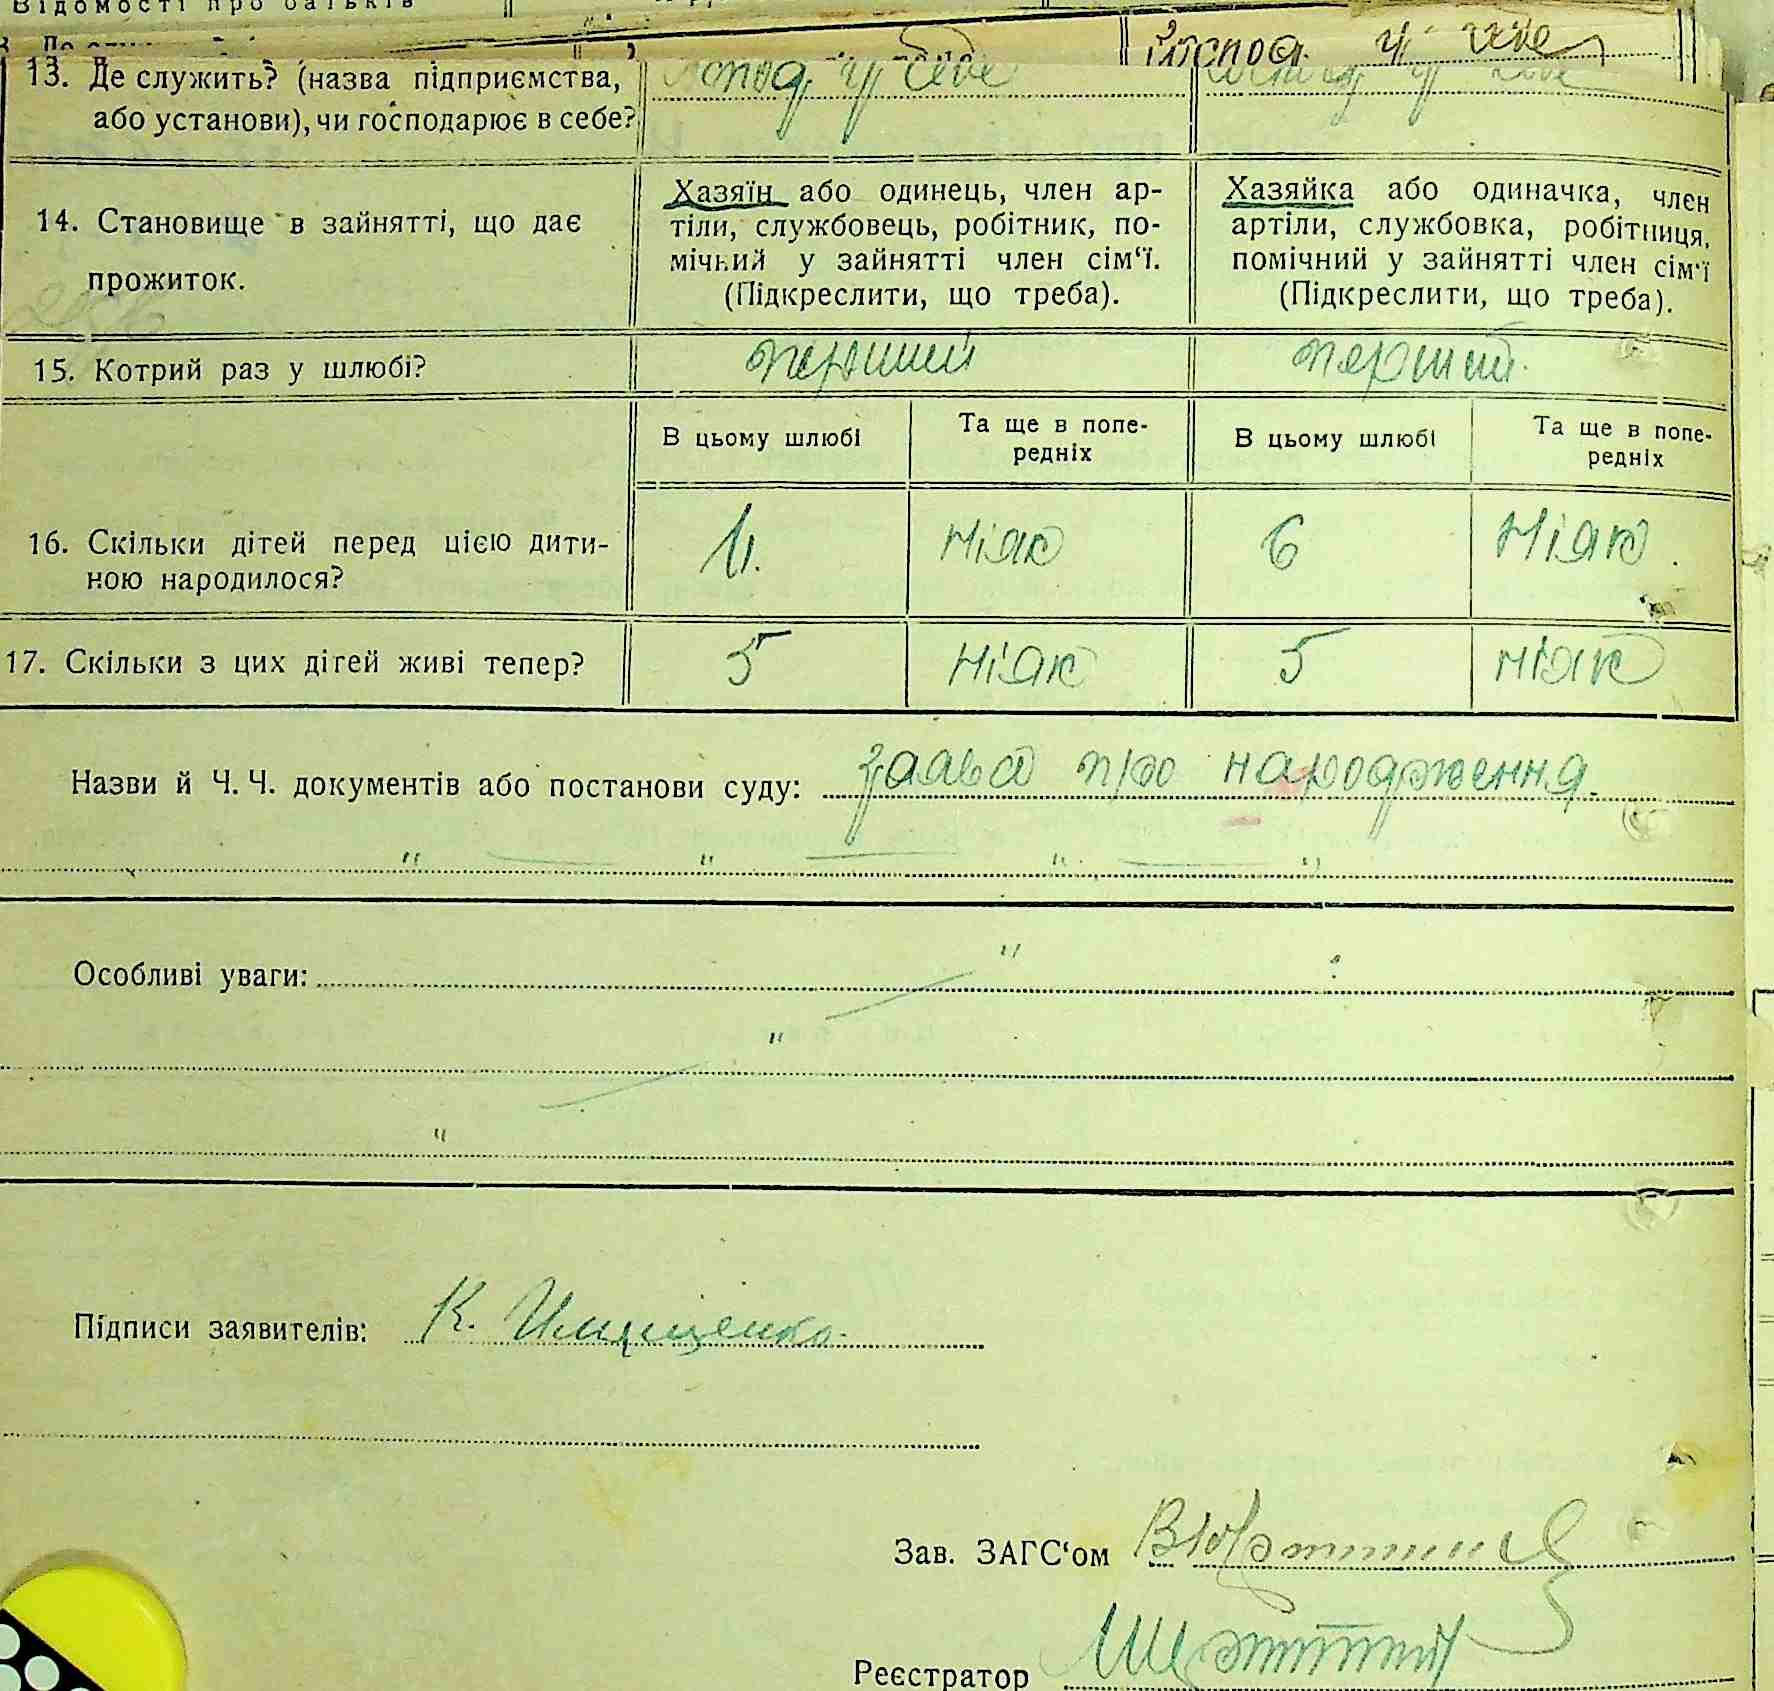 Відомості про батьків
13. Де служить? (назва підприємства, або установи), чи господарює в себе?
Господ. у себе
господ у себе
господ у себе
14. Становище в зайнятті, що дає прожиток.
Хазяїн або одинець, член ар-
тіли, службовець, робітник, по-
мічний у зайнятті член сім‘ї.
(Підкреслити, що треба).
Хазяйка або одиначка, член
артіли, службовка, робітниця,
помічний у зайнятті член сім‘ї
(Підкреслити, що треба).
15. Котрий раз у шлюбі?
перший
перший.
В цьому шлюбі
Та ще в попе-
редніх
В цьому шлюбі
Та ще в попе-
редніх
16. Скільки дітей перед цією дити-
ною народилося?
ніяк
6
ніяк.
17. Скільки з цих дітей живі тепер?
5
ніяк
5
ніяк
Назви й Ч. Ч. документів або постанови суду: заява про народження.
Особливі уваги:
Підписи заявителів: К.
Зав. ЗАГС‘ом
Реєстратор